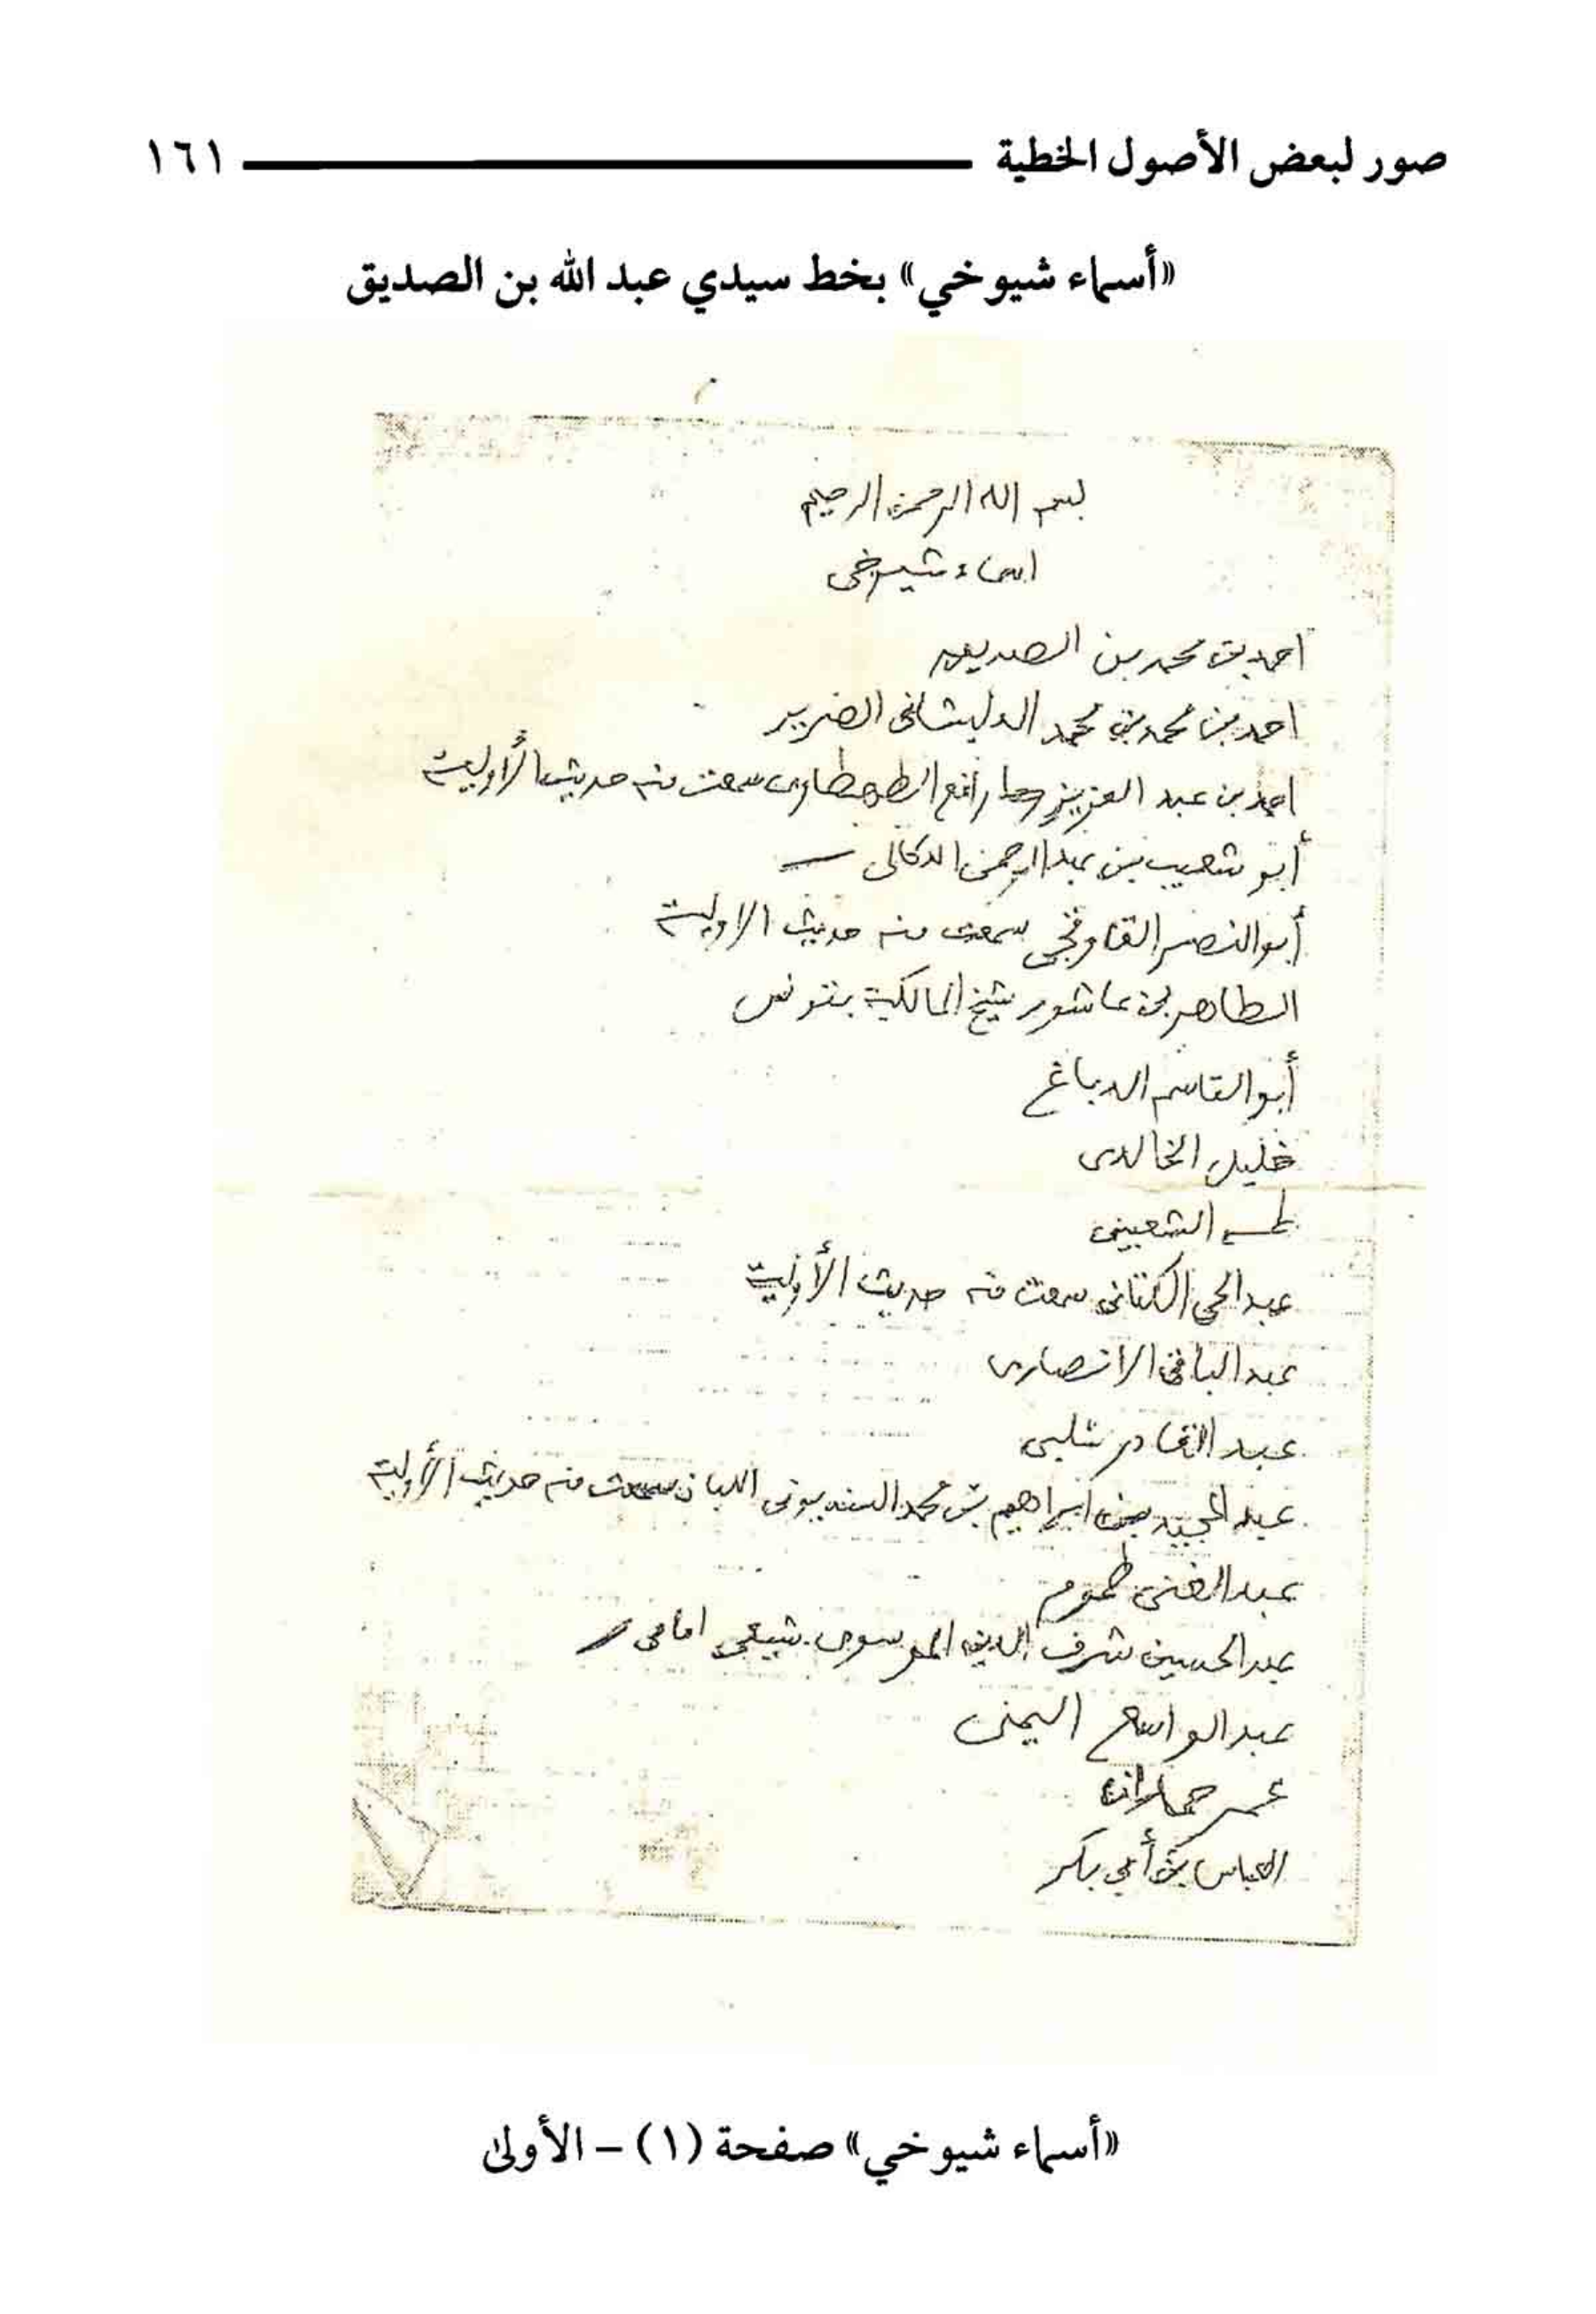 صور لبعض الأصول الخطية ١٦١
«أسماء شيوخي» بخط سيدي عبد الله بن الصديق
بسم الله الرحمن الرحيم
اسماء شيوخى
احمد بن محمد بن الصديق
احمد بن محمد بن محمد الدلبشانى الضرير
احمد بن عبد العزيز رافع الطهطاوى سمعت منه حديث الأولية
أبو شعيب بن عبد الرحمن الدكالى
أبو النصر القاوقجى سمعت منه حديث الاولية
الطاهر بن عاشور شيخ المالكية بتونس
أبو القاسم الدباغ
خليل الخالدى
طه الشعبينى
عبد الحى الكتانى سمعت منه حديث الأولية
عبد الباقى الانصارى
عبد القادر شلبى
عبد المجيد بن ابراهيم بن محمد السنديونى اللبان سمعت منه حديث الأولية
عبد الغنى طموم
عبد الحسين شرف الدين الموسوى شيعى امامى
عبد الواسع اليمنى
عمر حمدان
العباس بن أبي بكر
«أسماء شيوخي» صفحة (١) – الأولى